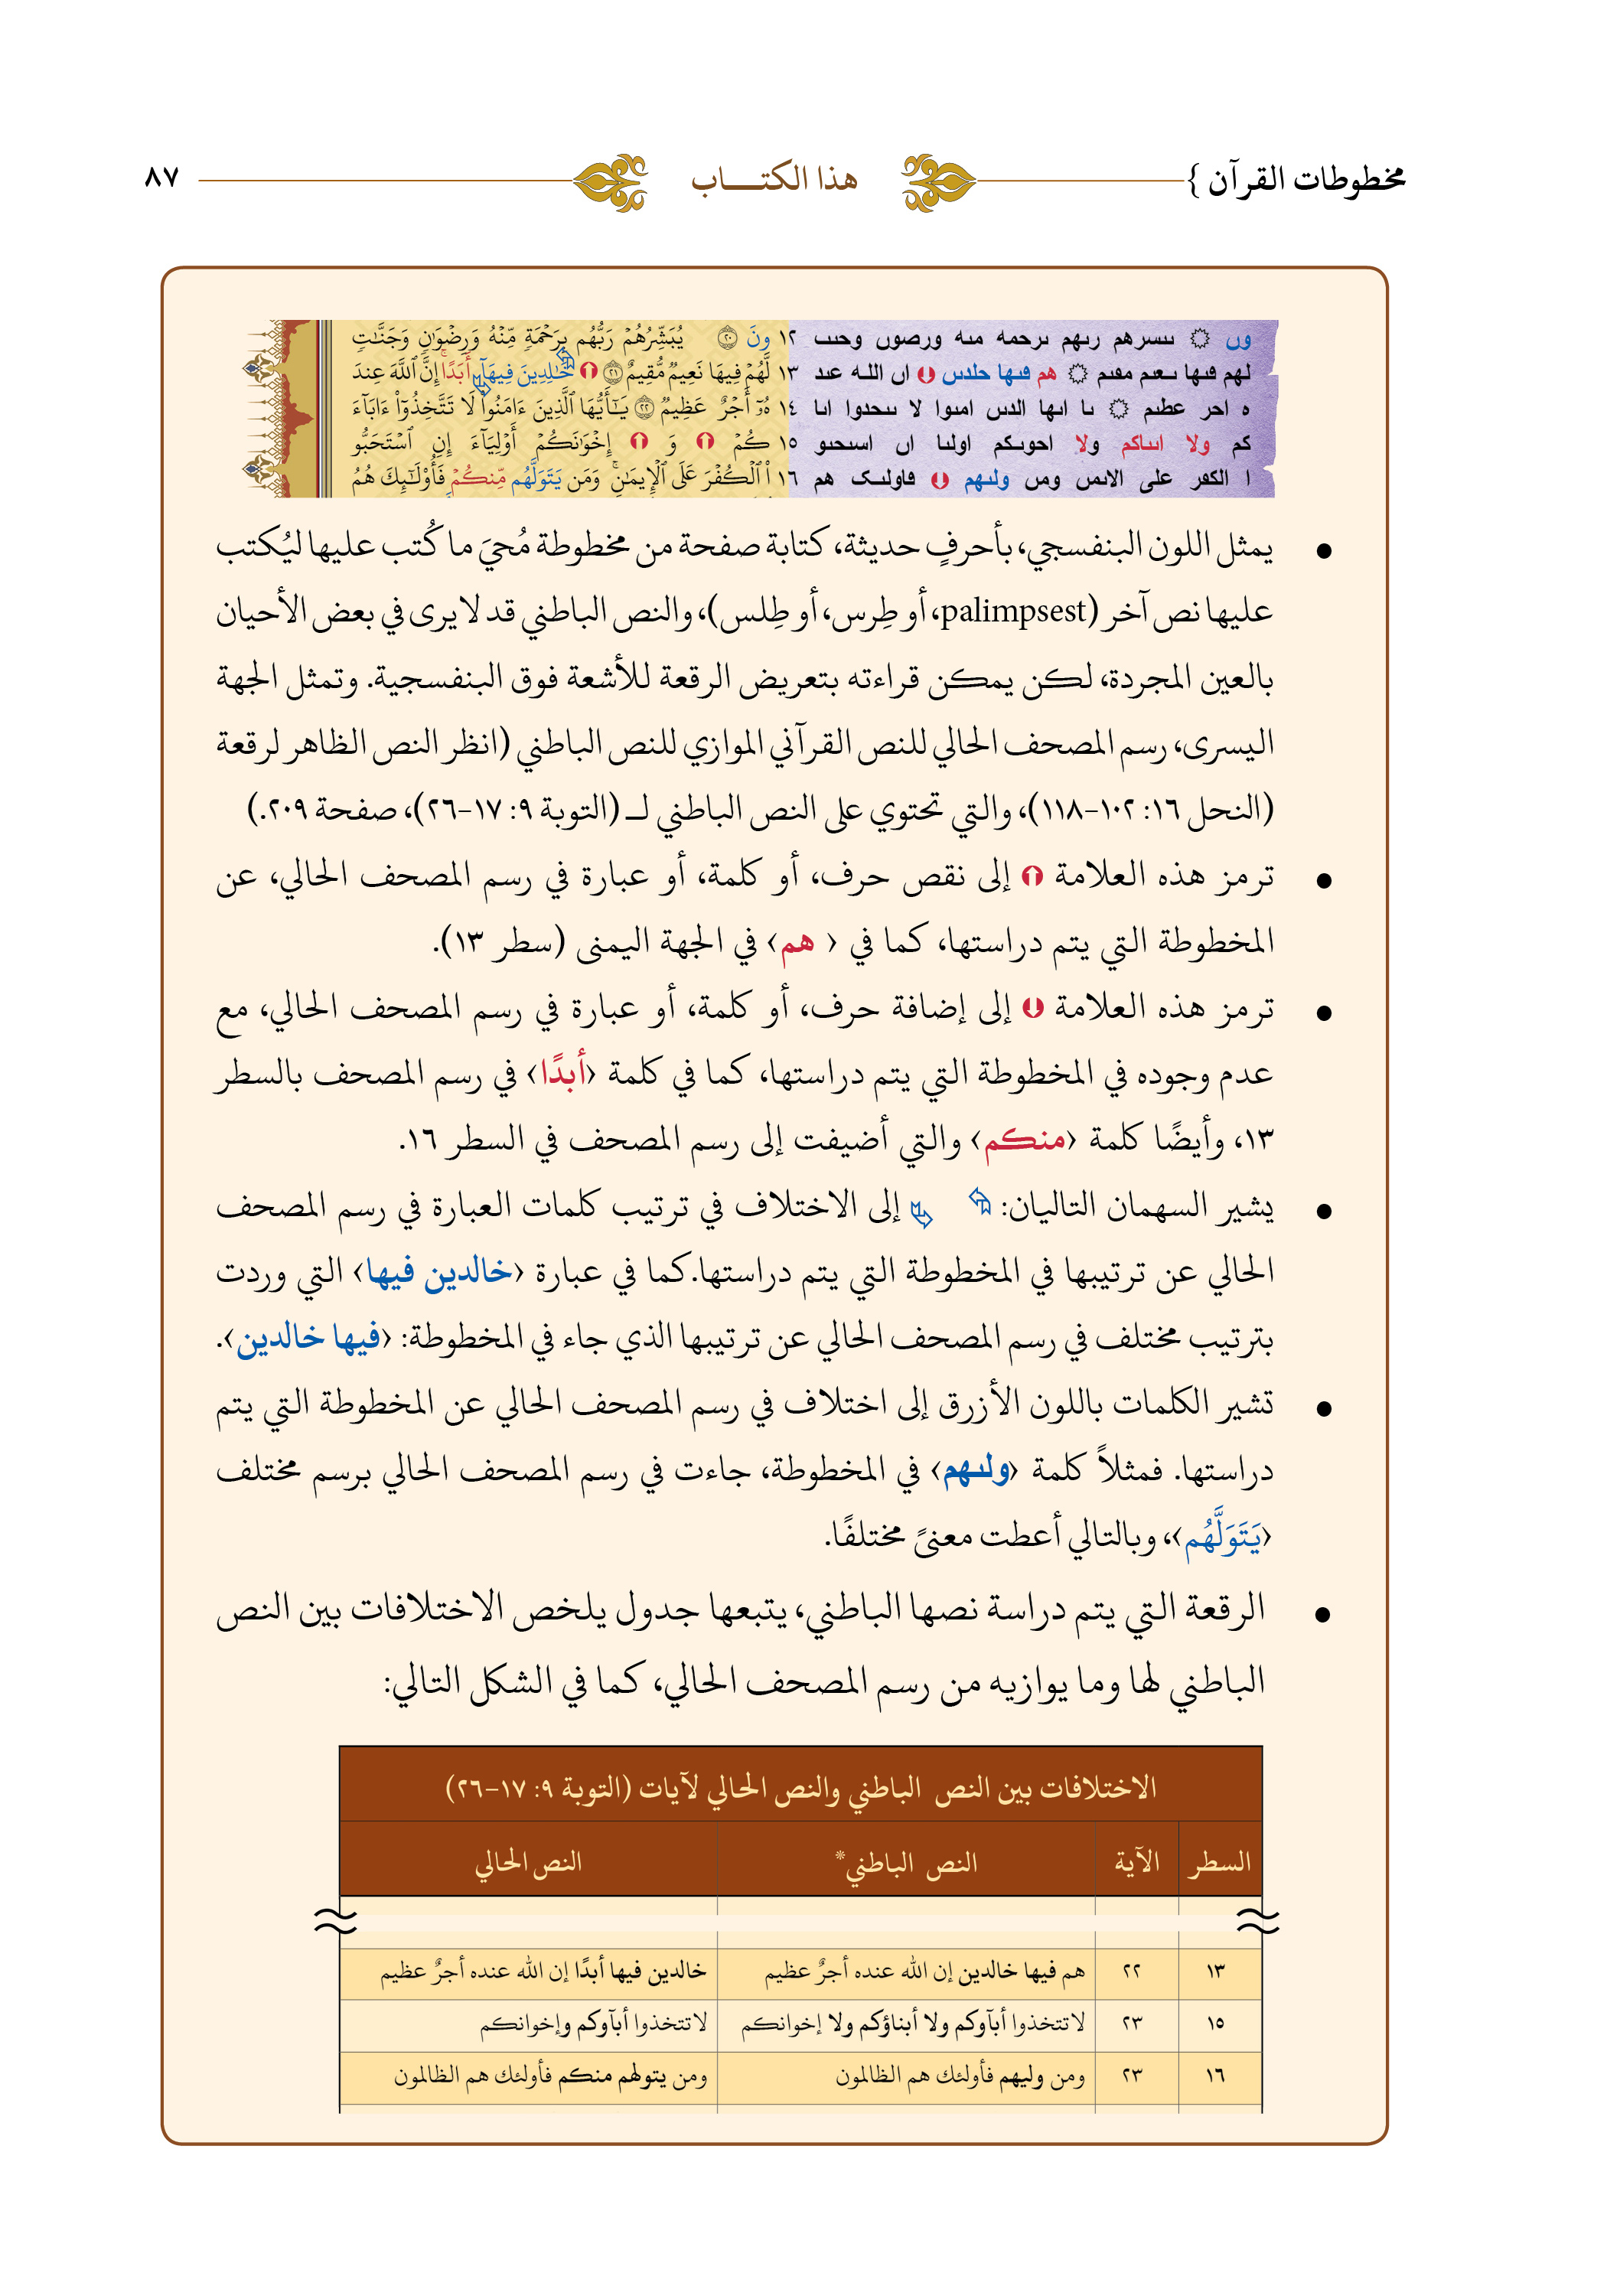 مخطوطات القرآن }
هذا الكتـــــاب
٨٧
وں ۞ ىىسرهم رىهم ىرحمه مىه ورصوں وحىىـ
لهم فىها ىعىم مقىم ۞ هم فىها حلدىں ان اللـه عىد
ه احر عطىم ۞ ىا اىها الدىں امىوا لا ىىحدوا اىا
كم ولا اىىاكم ولا احوىكم اولىا اں اسىحىو
ا الكفر على الاىمں ومں ولىهم فاولىک هم
١٢ ونَ ٢٠ يُبَشِّرُهُمْ رَبُّهُم بِرَحْمَةٍ مِّنْهُ وَرِضْوَٰنٍ وَجَنَّٰتٍ
١٣ لَّهُمْ فِيهَا نَعِيمٌ مُّقِيمٌ ٢١ خَٰلِدِينَ فِيهَآ أَبَدًا إِنَّ ٱللَّهَ عِندَ
١٤ هُۥٓ أَجْرٌ عَظِيمٌ ٢٢ يَٰٓأَيُّهَا ٱلَّذِينَ ءَامَنُوا۟ لَا تَتَّخِذُوٓا۟ ءَابَآءَ
١٥ كُمْ وَ إِخْوَٰنَكُمْ أَوْلِيَآءَ إِنِ ٱسْتَحَبُّو
١٦ ا۟ ٱلْكُفْرَ عَلَى ٱلْإِيمَٰنِ ۚ وَمَن يَتَوَلَّهُم مِّنكُمْ فَأُو۟لَٰٓئِكَ هُمُ
• يمثل اللون البنفسجي، بأحرفٍ حديثة، كتابة صفحة من مخطوطة مُحيَ ما كُتب عليها ليُكتب
عليها نص آخر (palimpsest، أو طِرس، أو طِلس)، والنص الباطني قد لا يرى في بعض الأحيان
بالعين المجردة، لكن يمكن قراءته بتعريض الرقعة للأشعة فوق البنفسجية. وتمثل الجهة
اليسرى، رسم المصحف الحالي للنص القرآني الموازي للنص الباطني (انظر النص الظاهر لرقعة
(النحل ١٦: ١٠٢-١١٨)، والتي تحتوي على النص الباطني لــ (التوبة ٩: ١٧-٢٦)، صفحة ٢٠٩.)
• ترمز هذه العلامة إلى نقص حرف، أو كلمة، أو عبارة في رسم المصحف الحالي، عن
المخطوطة التي يتم دراستها، كما في ‹ هم› في الجهة اليمنى (سطر ١٣).
• ترمز هذه العلامة إلى إضافة حرف، أو كلمة، أو عبارة في رسم المصحف الحالي، مع
عدم وجوده في المخطوطة التي يتم دراستها، كما في كلمة ‹أبدًا› في رسم المصحف بالسطر
١٣، وأيضًا كلمة ‹منكم› والتي أضيفت إلى رسم المصحف في السطر ١٦.
• يشير السهمان التاليان: إلى الاختلاف في ترتيب كلمات العبارة في رسم المصحف
الحالي عن ترتيبها في المخطوطة التي يتم دراستها.كما في عبارة ‹خالدين فيها› التي وردت
بترتيب مختلف في رسم المصحف الحالي عن ترتيبها الذي جاء في المخطوطة: ‹فيها خالدين›.
• تشير الكلمات باللون الأزرق إلى اختلاف في رسم المصحف الحالي عن المخطوطة التي يتم
دراستها. فمثلاً كلمة ‹ولىهم› في المخطوطة، جاءت في رسم المصحف الحالي برسم مختلف
‹يَتَوَلَّهُم›، وبالتالي أعطت معنىً مختلفًا.
• الرقعة التي يتم دراسة نصها الباطني، يتبعها جدول يلخص الاختلافات بين النص
الباطني لها وما يوازيه من رسم المصحف الحالي، كما في الشكل التالي:
الاختلافات بين النص الباطني والنص الحالي لآيات (التوبة ٩: ١٧-٢٦)
السطر الآية النص الباطني* النص الحالي
١٣ ٢٢ هم فيها خالدين إن الله عنده أجرٌ عظيم خالدين فيها أبدًا إن الله عنده أجرٌ عظيم
١٥ ٢٣ لا تتخذوا أبآوكم ولا أبناؤكم ولا إخوانكم لا تتخذوا أبآوكم وإخوانكم
١٦ ٢٣ ومن وليهم فأولئك هم الظالمون ومن يتولهم منكم فأولئك هم الظالمون